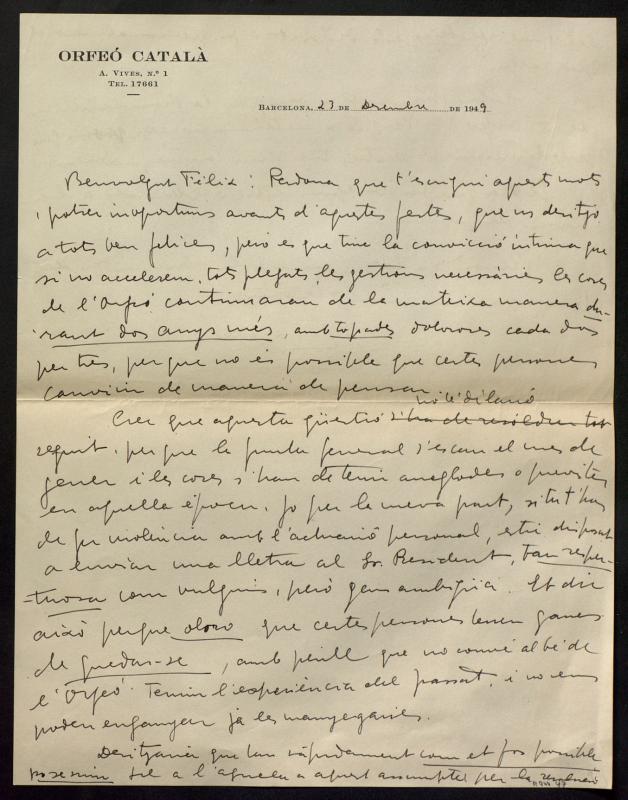 ORFEÓ CATALÀ
A. VIVES, N.º 1
TEL. 17661
BARCELONA, 23 DE Desembre DE 1949
Benvolgut Fèlix: Perdona que t'escrigui aquests mots
, potser inoportuns avants d'aquestes festes, que us desitjo
a tots ben felices, però es que tinc la convicció íntima que
si no accelerem, tots plegats, les gestions necessàries les coses
de l'Orfeó continuaran de la mateixa manera du-
rant dos anys més, amb topades doloroses cada dos
per tres, perque no és possible que certes persones
canviin de manera de pensar.
no té dilació
Crec que aquesta qüestió s'ha de resoldre tot
seguit, perque la Junta General s'escau el mes de
gener i les coses s'han de tenir arreglades o previstes
en aquella época. Jo per la meva part, si tu t'has
de fer violència amb l'actuació personal, estic disposat
a enviar una lletra al Sr. President, tan respec-
tuosa com vulguis, però gens ambigüa. Et dic
això perque oloro que certes persones tenen ganes
de quedar-se, amb perill que no convé al bé de
l'Orfeó. Tenim l'experiència del passat, i no ens
poden enganyar ja les manyagaries.
Desitjaria que tan ràpidament com et fos possible
posessim fil a l'agulla a aquest assumpte, per la resolució